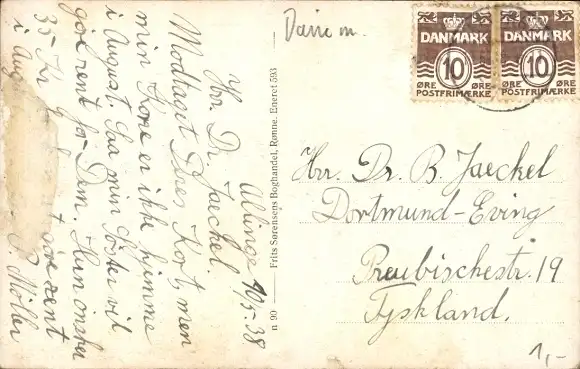 Danm.
DANMARK
10
ØRE ØRE
POSTFRIMÆRKE
DANMARK
10
ØRE ØRE
POSTFRIMÆRKE
Hrr. Dr. B. Jaeckel
Dortmund-Eving
Preubischestr. 19
Tyskland.
1,-
n 90 — Frits Sørensens Boghandel, Rønne. Eneret 593
10/5-38
Hr. Dr. Jaeckel
Modtaget Deres Kort, men
min Kone er ikke hjemme
i August. Saa min Søster vil
gøre rent for Dem. Hun ønsker
35 Kr
gøre rent
i Aug
Møller